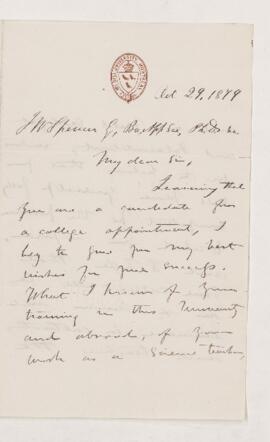 29, 1879
J W Spencer
My dear Sir,
Learning that
you are a candidate for
a college appointment, I
beg to give you my best
wishes for your success.
What I know of your
training in this University
and abroad, of your
work as a Science teacher,